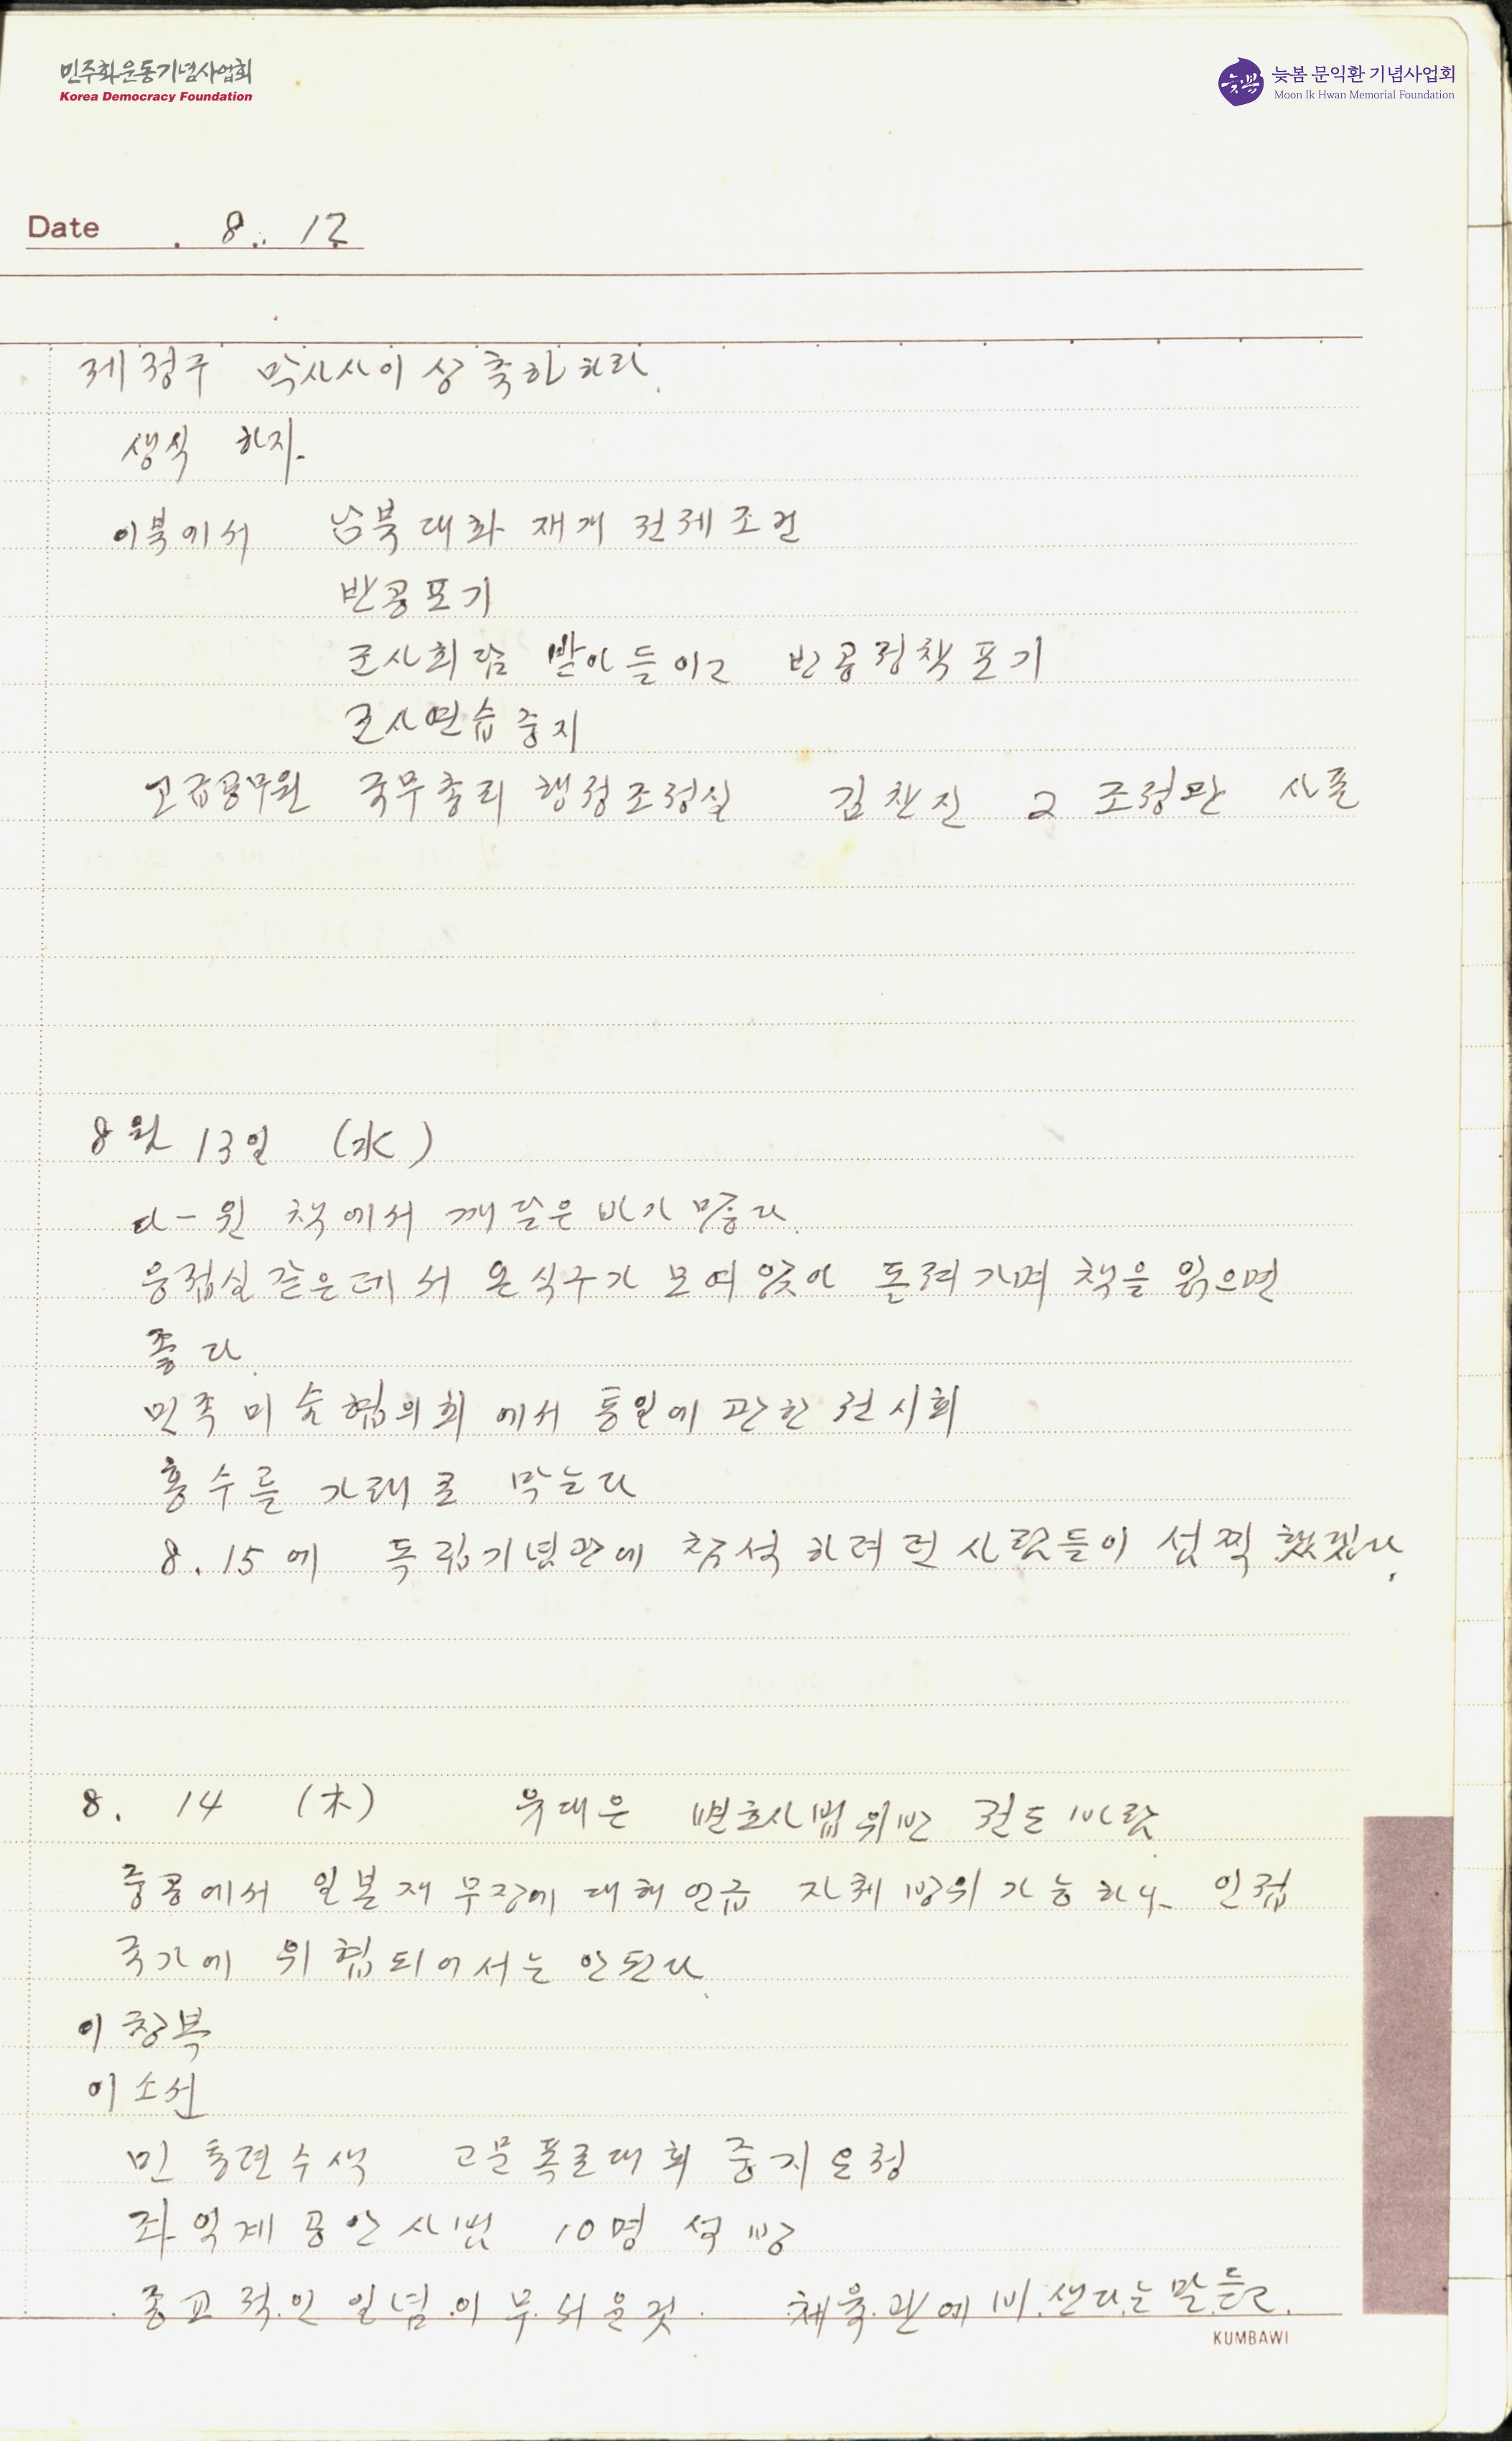 민주화운동기념사업회
Korea Democracy Foundation
늦봄
늦봄 문익환 기념사업회
Moon Ik Hwan Memorial Foundation
Date . 8. 12
제정구 막사사이상 축하하라.
생식 하지.
이북에서 남북대화 재개 전제조건
반공포기
군사회담 받아들이고 반공정책포기
군사연습중지
고급공무원 국무총리행정조정실 김찬진 2 조정관 사표
8월 13일 (水)
다-윈 책에서 깨달은 바가 많다.
응접실같은데서 온식구가 모여앉아 돌려가며 책을 읽으면
좋다.
민족미술협의회에서 통일에 관한 전시회
홍수를 가래로 막는다
8.15에 독립기념관에 참석하려던 사람들이 섭찍했겠다.
8. 14 (木) 유대은 변호사법위반 전도바람.
중공에서 일본재무장에 대해언급 자체방위가능하나 인접
국가에 위협되어서는 안된다.
이창복
이소선
민통련수색 고문폭로대회 중지요청
좌익계공안사범 10명 석방
종교적인 일념이 무서운것. 체육관에 비샌다는말듣고.
KUMBAWI